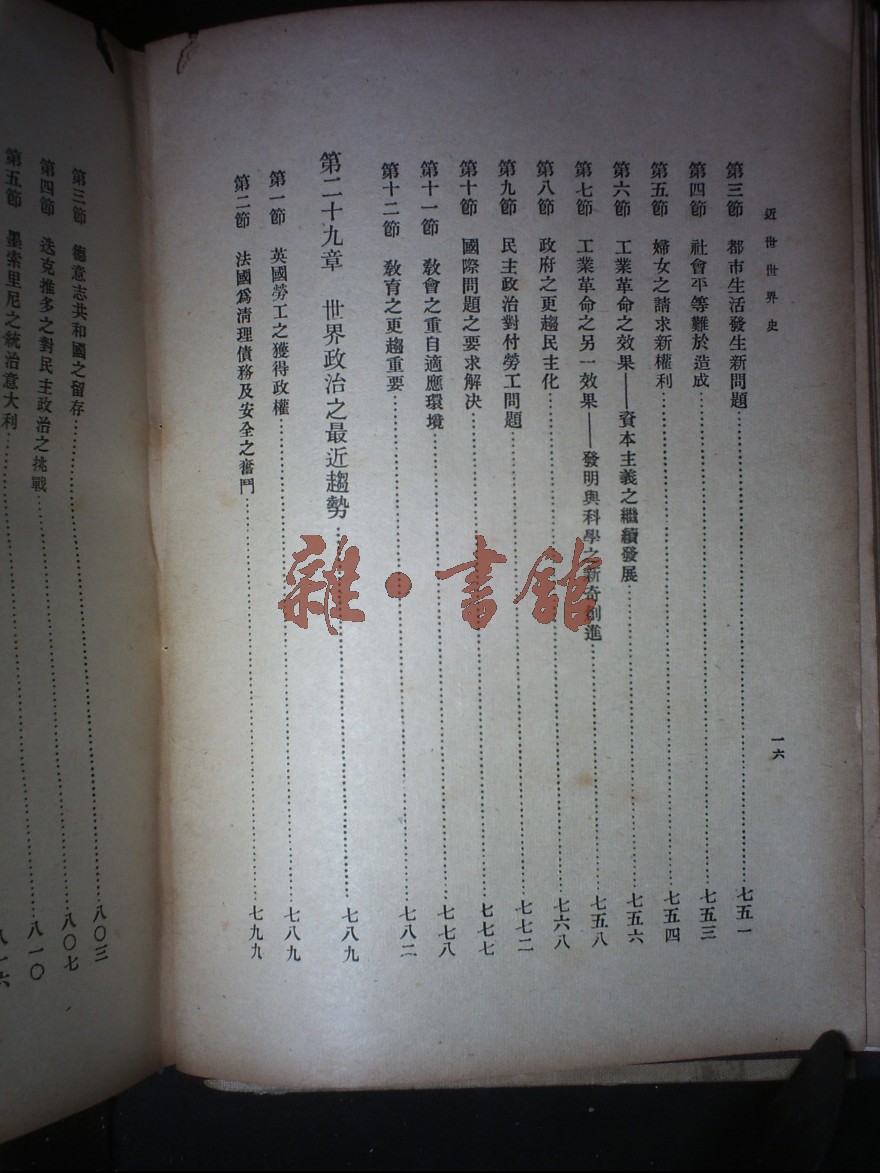 近世世界史
一六
第三節 都市生活發生新問題……七五一
第四節 社會平等難於造成……七五三
第五節 婦女之請求新權利……七五四
第六節 工業革命之效果——資本主義之繼續發展……七五六
第七節 工業革命之另一效果——發明與科學之新奇創進……七五八
第八節 政府之更趨民主化……七六八
第九節 民主政治對付勞工問題……七七二
第十節 國際問題之要求解決……七七七
第十一節 教會之重自適應環境……七七八
第十二節 敎育之更趨重要……七八二
第二十九章 世界政治之最近趨勢……七八九
第一節 英國勞工之獲得政權……七八九
第二節 法國爲淸理債務及安全之奮鬥……七九九
第三節 德意志共和國之留存……八〇三
第四節 迭克推多之對民主政治之挑戰……八〇七
第五節 墨索里尼之統治意大利……八一〇
八一六
雜·書館